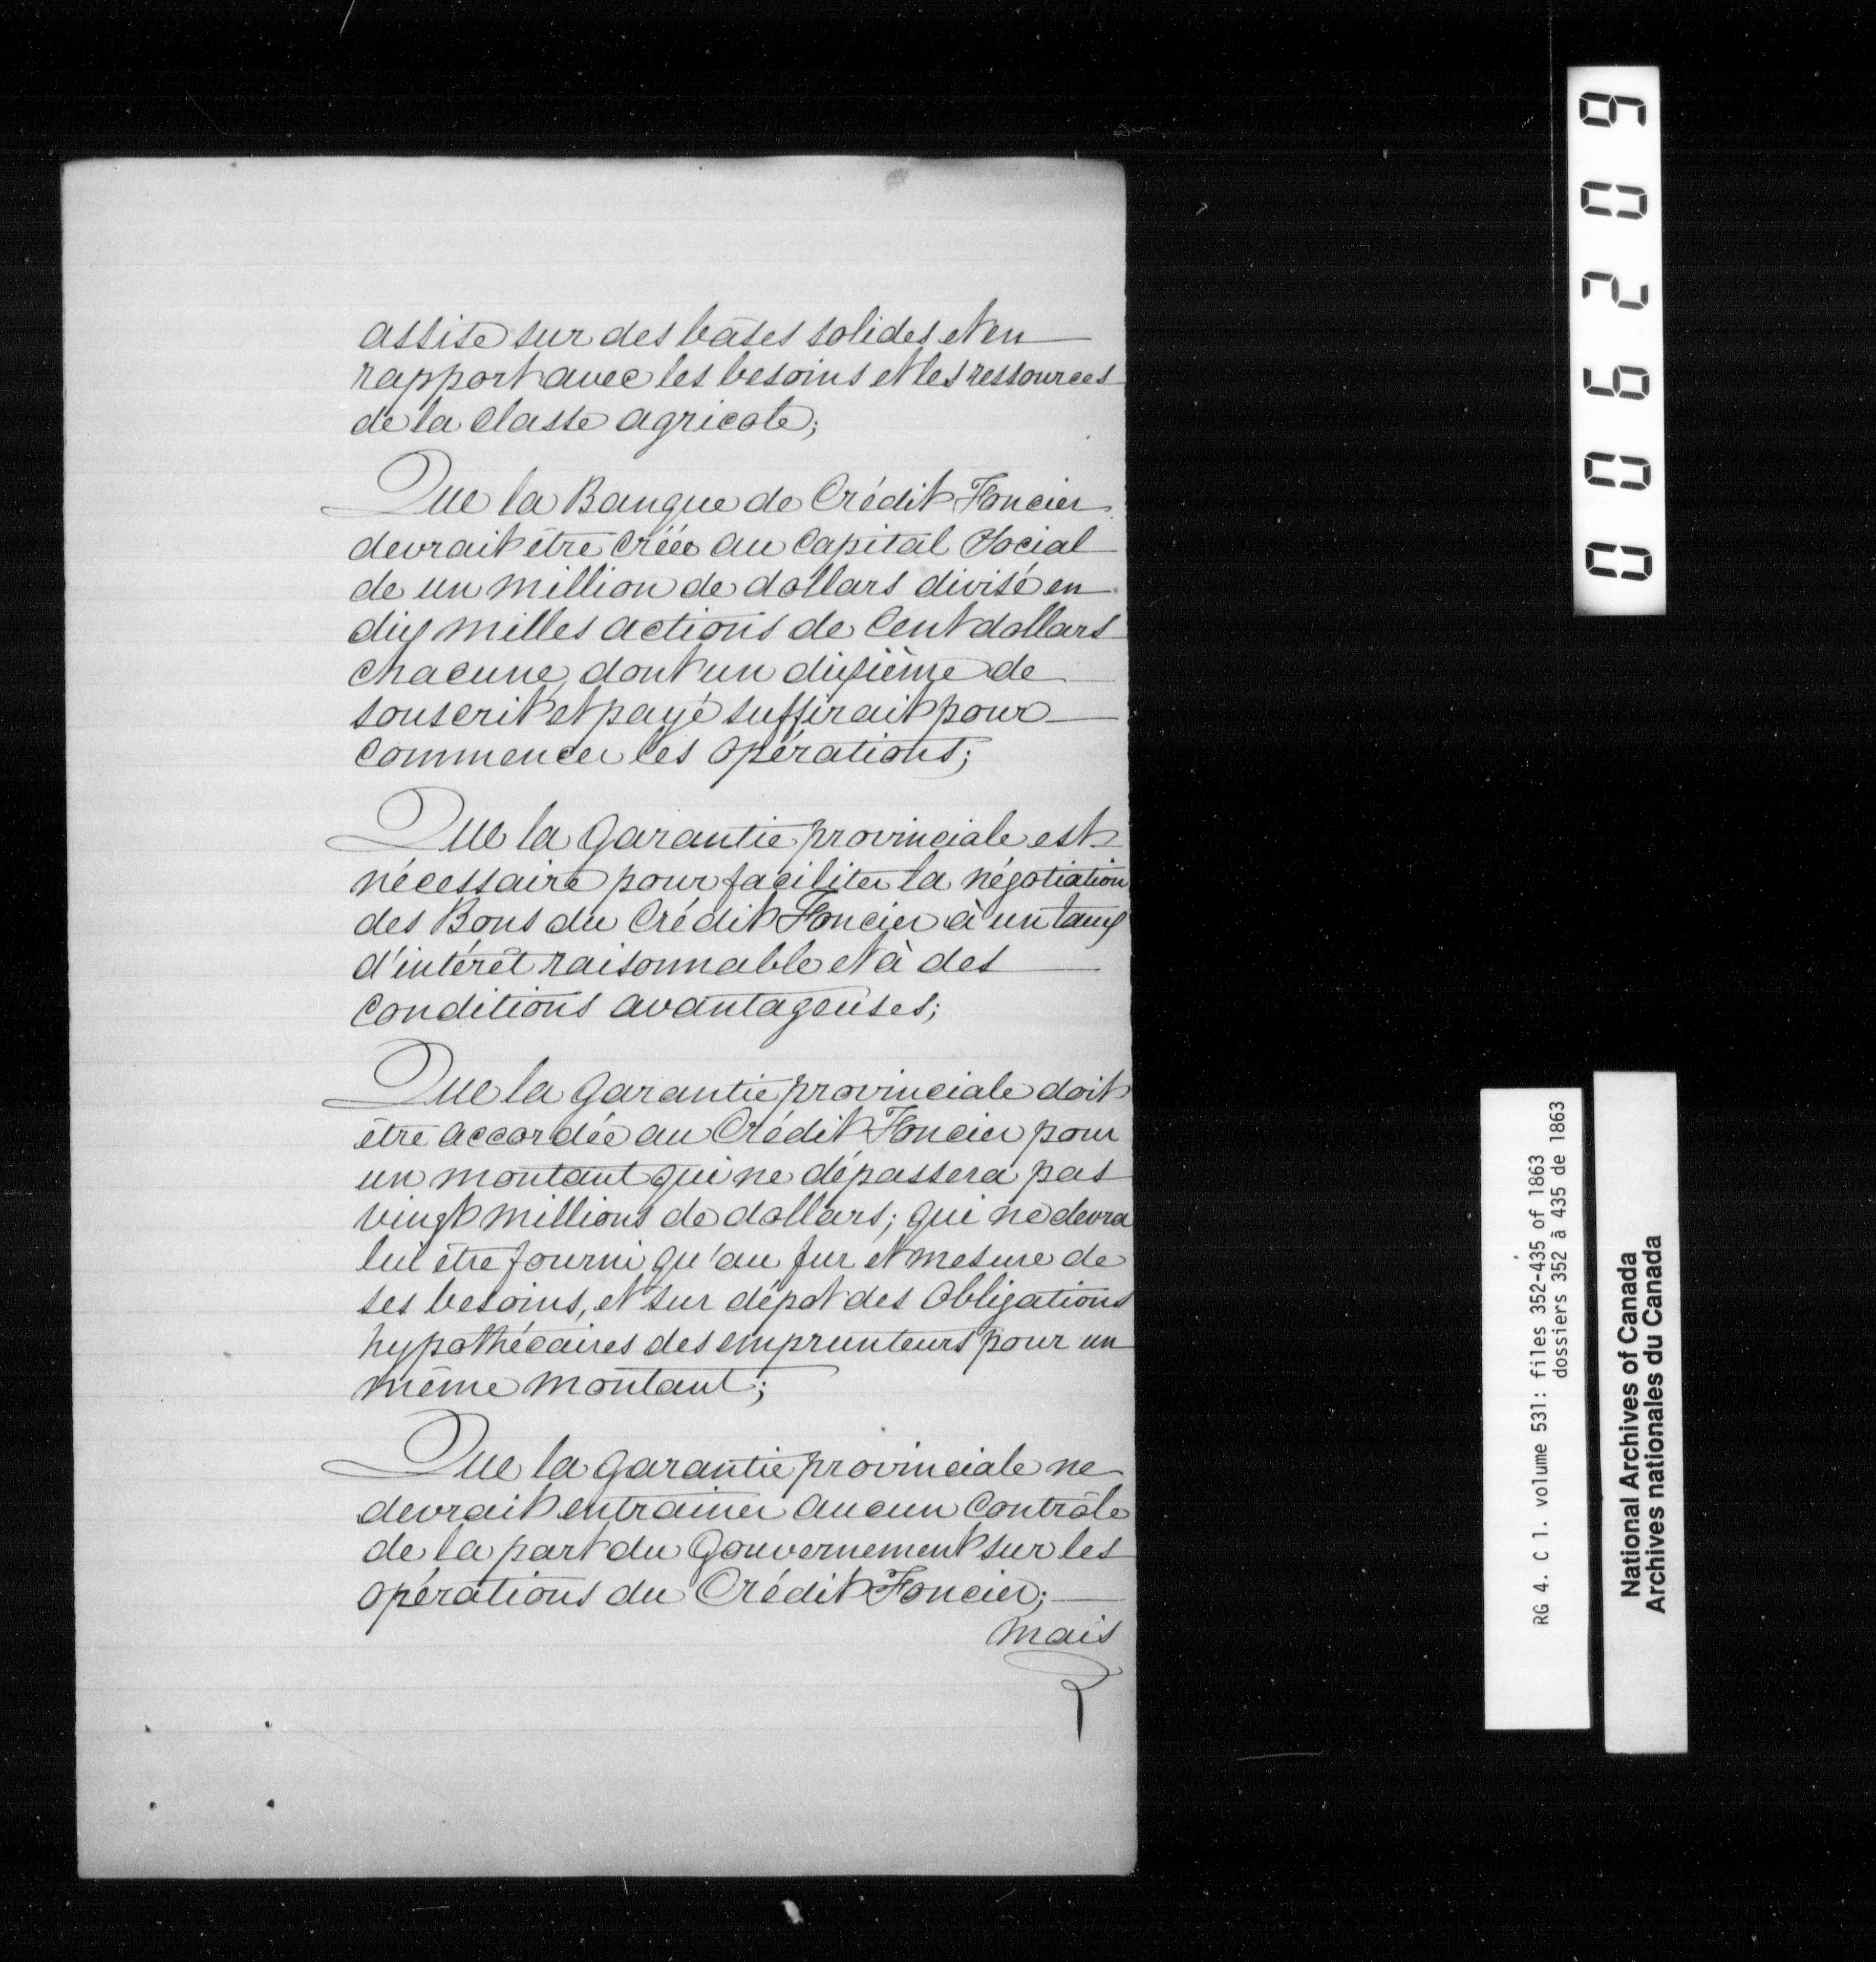 assise sur des bases solides et en
rapport avec les besoins et les ressources
de la Classe agricole;
Que la Banque de Crédit Foncier
devrait être Créée au Capital Social
de un million de dollars divisé en
dix milles actions de Cent dollars
chacune, dont un dixième de
souscrit et payé suffirait pour
commencer les opérations;
Que la Garantie provinciale est
nécessaire pour faciliter la négotiation
des Bons du Crédit Foncier à un taux
d'intérêt raisonnable et à des
conditions avantageuses;
Que la Garantie provinciale doit
être accordée au Crédit Foncier pour
un montant qui ne dépassera pas
vingt millions de dollars; qui ne devra
lui être fourni qu'au fur et mesure de
ses besoins, et sur dépot des Obligations
hypothécaires des emprunteurs pour un
même montant;
Que la Garantie provinciale ne
devrait entrainer aucun Contrôle
de la part du Gouvernement sur les
opérations du Crédit Foncier;
Mais
006209
RG 4. C 1. volume 531: files 352-435 of 1863
dossiers 352 à 435 de 1863
National Archives of Canada
Archives nationales du Canada